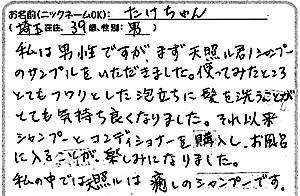 お名前(ニックネームOK): たけちゃん
(埼玉在住、39歳、性別: 男)
私は男性ですが、まず天照ル君シャンプー
のサンプルをいただきました。使ってみたところ
とてもフワリとした泡立ちに髪を洗うことが
とても気持ち良くなりました。それ以来
シャンプーとコンディショナーを購入し、お風呂
に入ることが、楽しみになりました。
私の中では天照ルは癒しのシャンプーです。